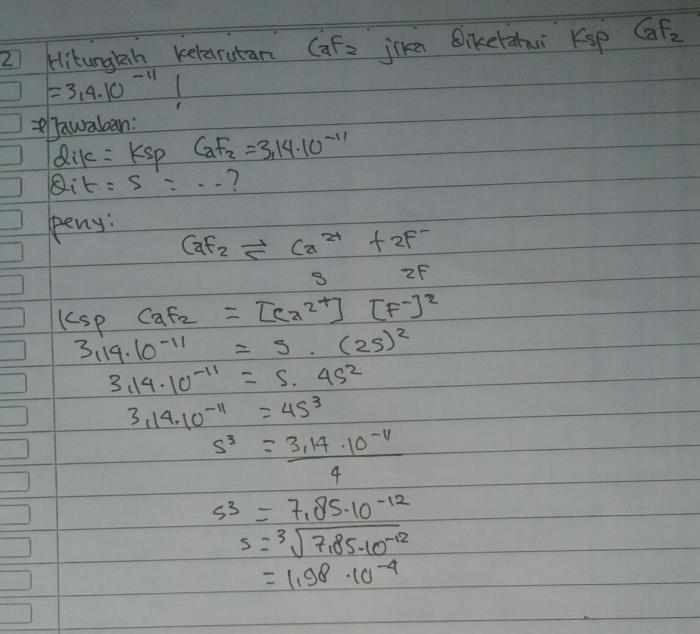 2 Hitunglah kelarutan CaF₂ jika Diketahui Ksp CaF₂
= 3,4.10⁻¹¹ !
⇒ Jawaban:
Dik = Ksp CaF₂ = 3,14.10⁻¹¹
Dit = s = ...?
peny:
CaF₂ ⇌ Ca²⁺ + 2F⁻
s 2F
Ksp CaF₂ = [Ca²⁺] [F⁻]²
3,14.10⁻¹¹ = s . (2s)²
3,14.10⁻¹¹ = s. 4s²
3,14.10⁻¹¹ = 4s³
s³ = 3,14 .10⁻¹¹
4
s³ = 7,85.10⁻¹²
s = ³√7,85.10⁻¹²
= 1,98 .10⁻⁴